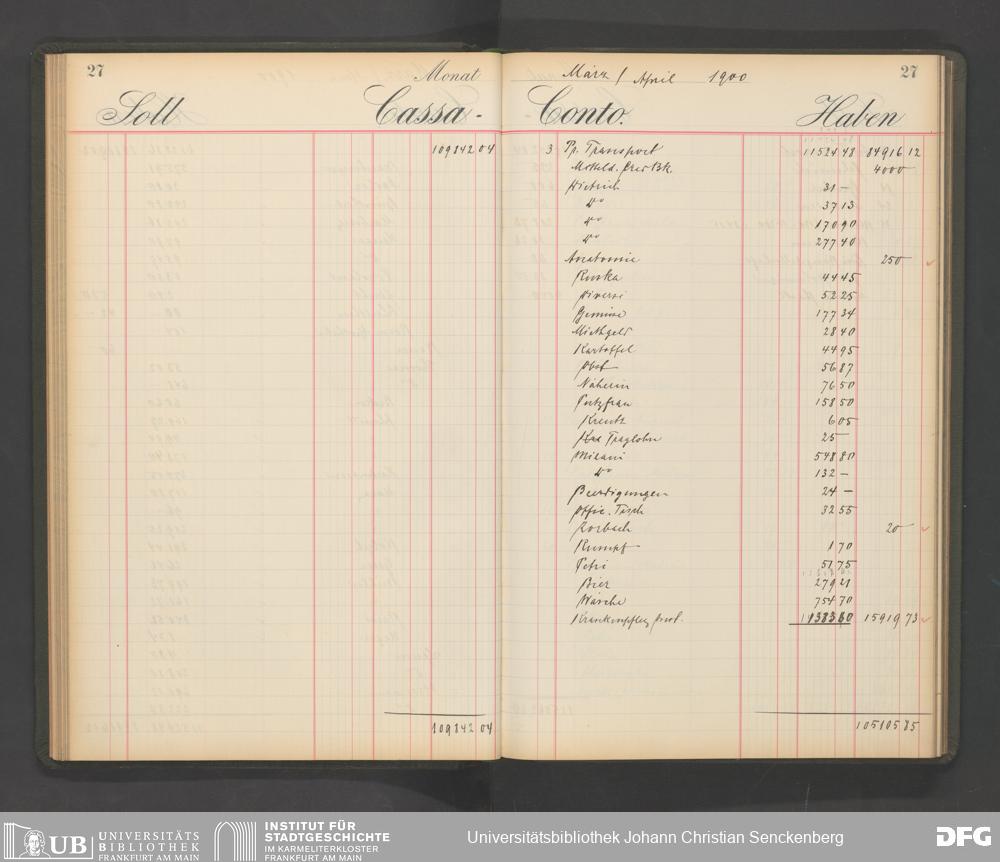 27 Monat
Soll Cassa-
109842 04
109842 04
März / April 1900 27
Conto. Haben
3 Pr. Transport 11524 48 84916 12
4000
Dietrich 31 -
do 37 13
do 170 90
do 277 40
Anatomie 250
Ruska 44 45
Diversi 52 25
Gemüse 177 34
Miethgeld 28 40
Kartoffel 44 95
Obst 56 87
Näherin 76 50
Putzfrau 158 50
Kreutz 6 05
Taglohn 25 -
Milani 548 80
do 132 -
Beerdigungen 24 -
Offic. Tisch 32 55
Rorbach 20
Rumpf 1 70
Petri 51 75
Bier 279 21
Wäsche 754 70
Krankenpfleg 15919 73
105105 85
UB UNIVERSITÄTS
BIBLIOTHEK
FRANKFURT AM MAIN
INSTITUT FÜR
STADTGESCHICHTE
IM KARMELITERKLOSTER
FRANKFURT AM MAIN
Universitätsbibliothek Johann Christian Senckenberg
DFG